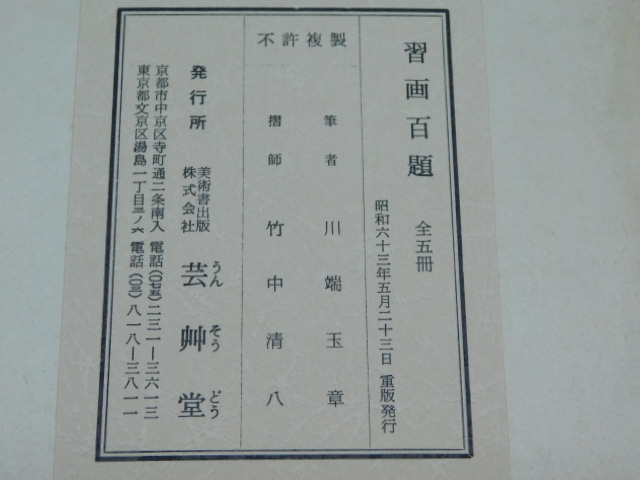 習画百題　全五冊
昭和六十三年五月二十三日　重版発行
不許複製
筆者　川端玉章
摺師　竹中清八
発行所　美術書出版株式会社　芸艸堂
うんそうどう
京都市中京区寺町通二条南入　電話(〇七五)二三一―三六一三
東京都文京区湯島一丁目三ノ六　電話(〇三)八一八―三八一一